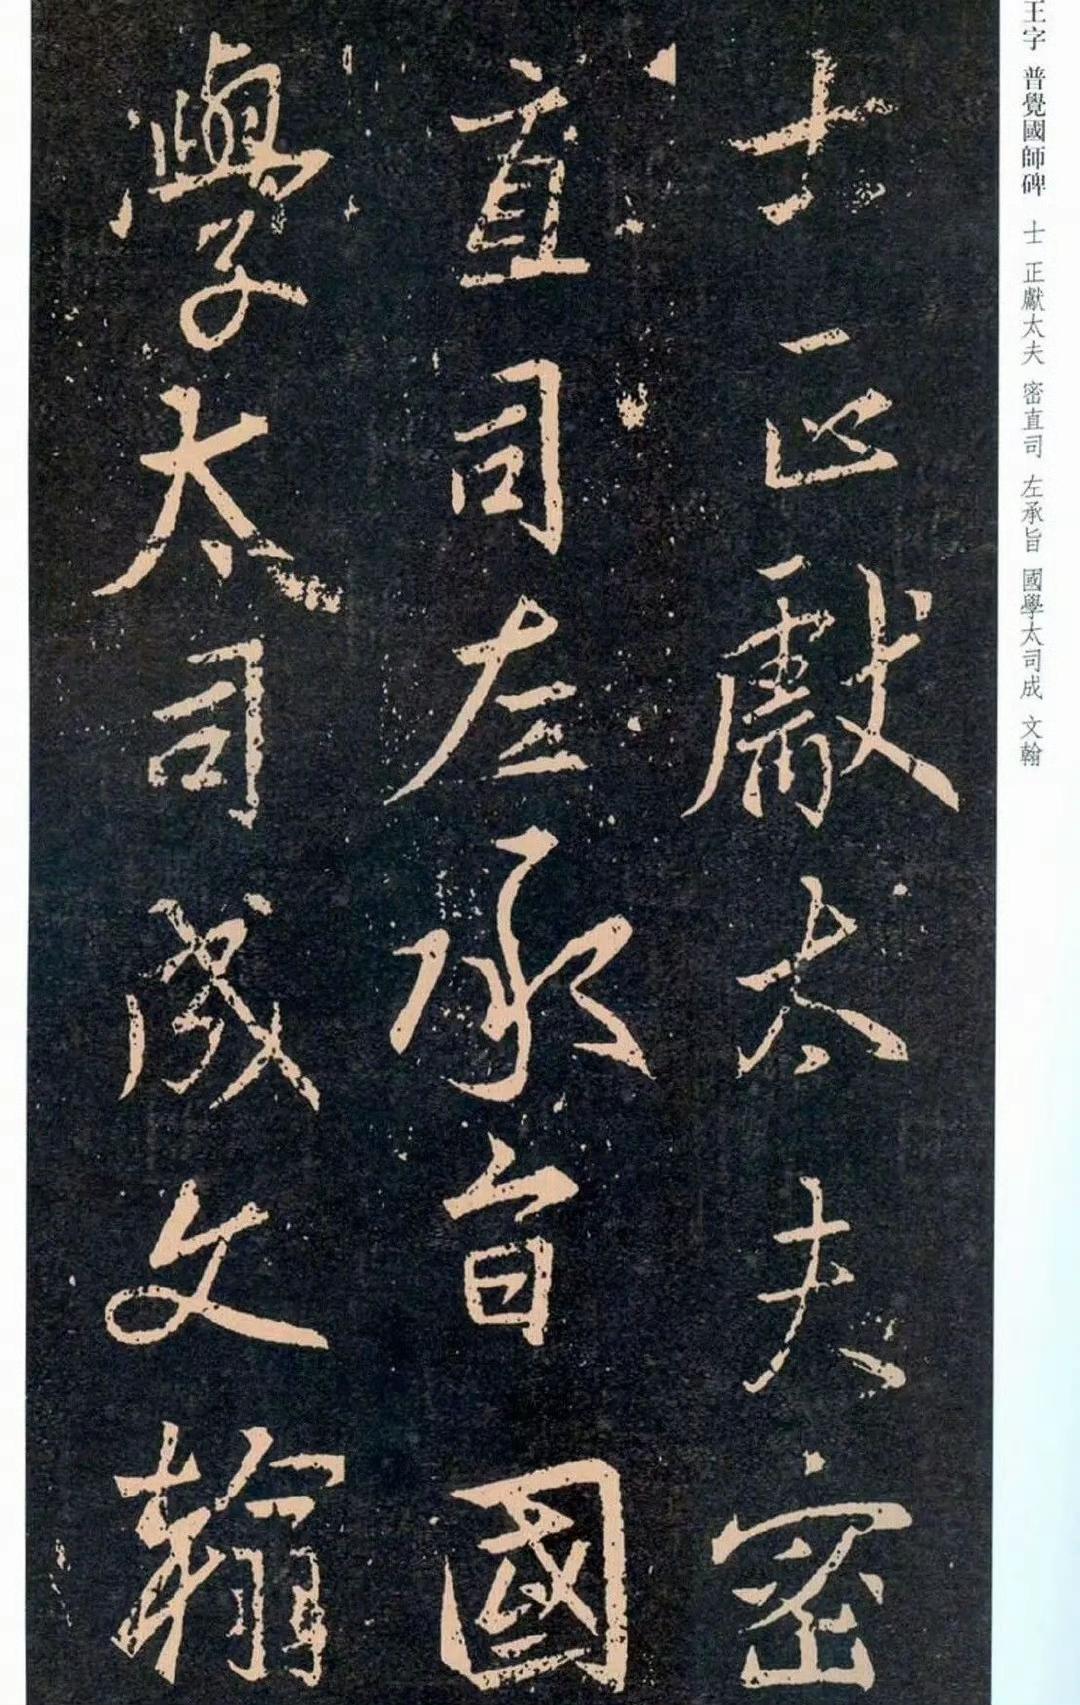 王字 普覺國師碑 士 正獻太夫 密直司 左承旨 國學太司成 文翰
士正獻太夫密
直司左承旨國
學太司成文翰